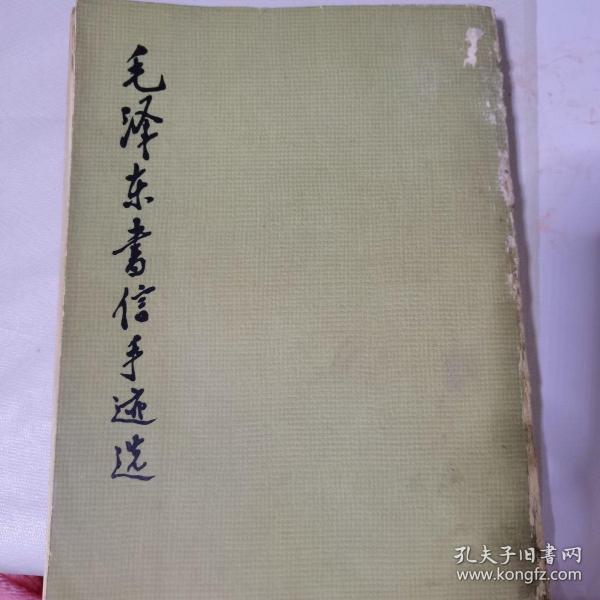 毛泽东書信手迹选
孔夫子旧書网
www.kongfz.com